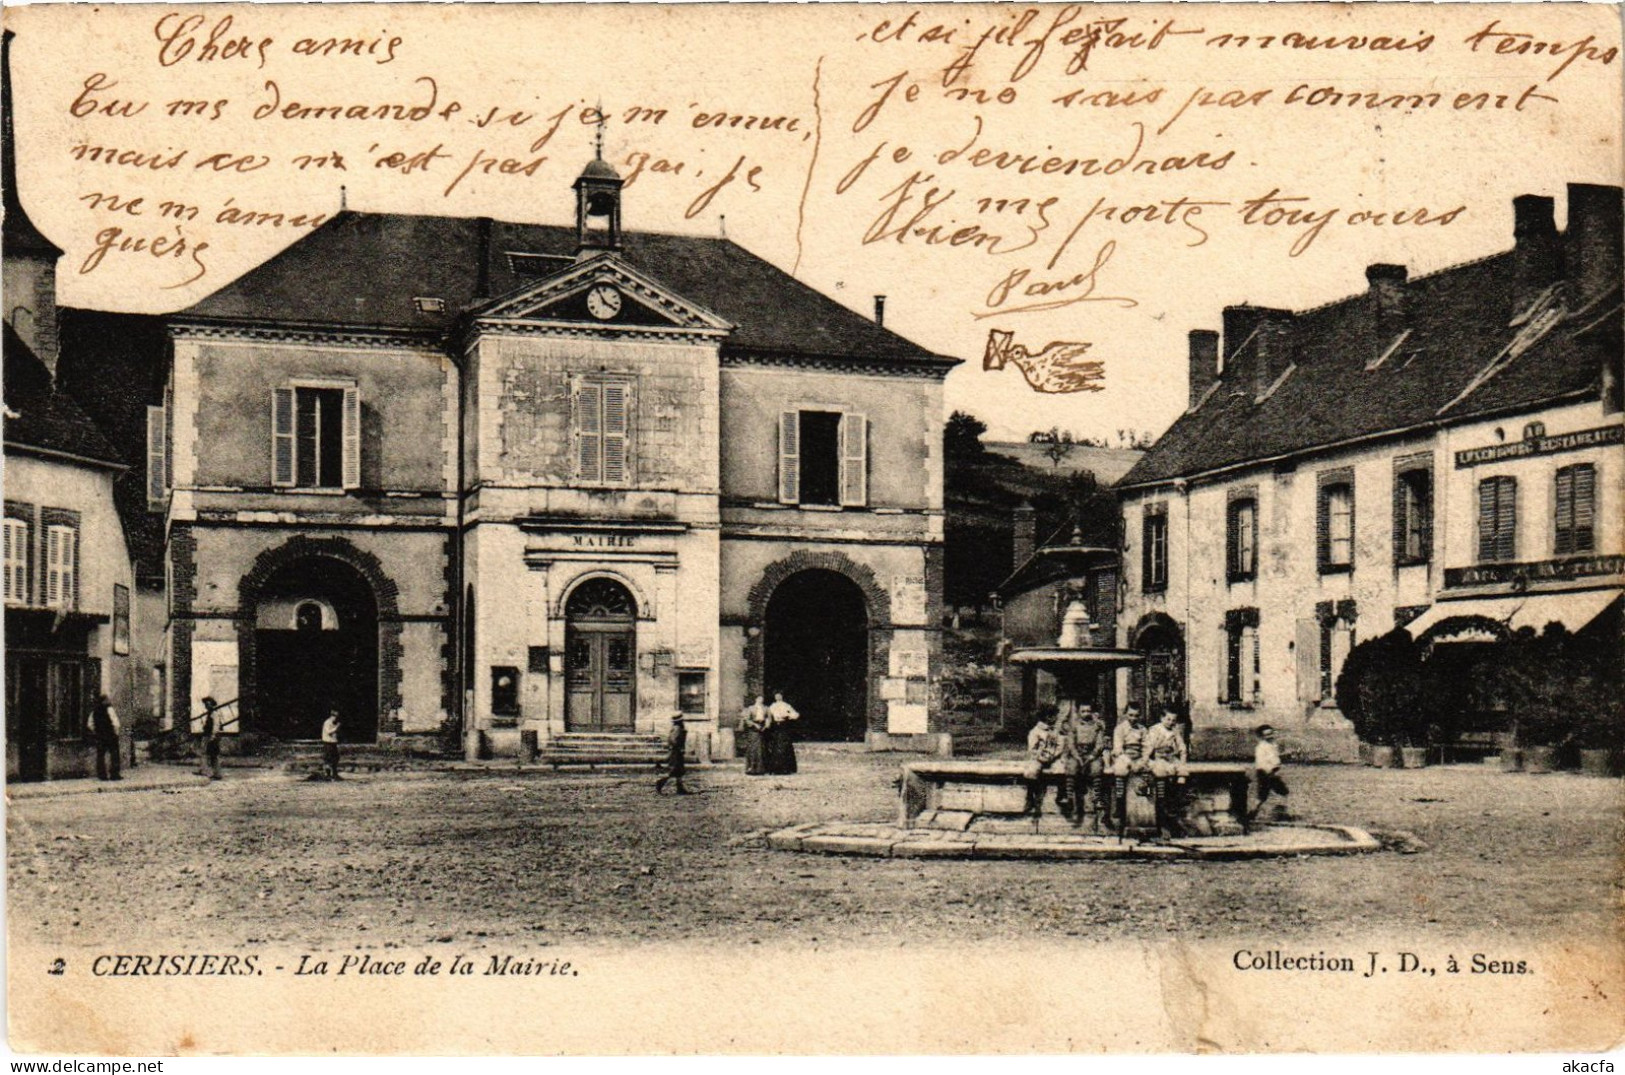 Chers amis
Tu me demande si je m'ennui,
mais ce n'est pas gai, je
ne m'amu
guère
et si il fesait mauvais temps
je ne sais pas comment
je deviendrais.
Je me porte toujours
bien
Paul
MAIRIE
AU
LUXEMBOURG RESTAURATEUR
2 CERISIERS. - La Place de la Mairie.
Collection J. D., à Sens.
akacfa.com